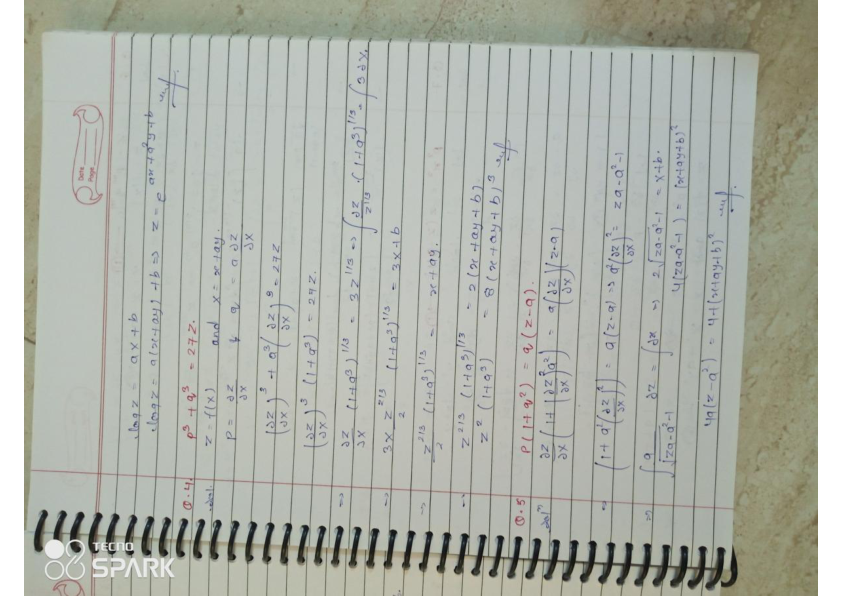 Date
Page
log z = ax + b
log z = a(x+ay) + b ⇒ z = e^{ax+a²y+b}
Q.4. p³ + q³ = 27z.
sol. z = f(x) and x = x+ay.
p = ∂z/∂x & q = a ∂z/∂x
(∂z/∂x)³ + a³(∂z/∂x)³ = 27z
(∂z/∂x)³ (1+a³) = 27z.
⇒ ∂z/∂x (1+a³)^{1/3} = 3z^{1/3} ⇒ ∫ ∂z/z^{1/3} · (1+a³)^{1/3} = ∫ 3∂x.
⇒ 3 × z^{2/3}/2 (1+a³)^{1/3} = 3x+b
⇒ z^{2/3}/2 (1+a³)^{1/3} = x+ay.
⇒ z^{2/3} (1+a³)^{1/3} = 2(x+ay+b)
z² (1+a³) = 8(x+ay+b)³
Q.5 p(1+q²) = q(z-a).
solⁿ ∂z/∂x (1+(∂z/∂x)² a²) = a(∂z/∂x)(z-a)
⇒ (1+a²(∂z/∂x)²) = a(z-a) ⇒ a²(∂z/∂x)² = za-a²-1
⇒ ∫ a/√(za-a²-1) ∂z = ∫∂x ⇒ 2√(za-a²-1) = x+b.
4(za-a²-1) = (x+ay+b)²
4a(z-a²) = 4+(x+ay+b)²
TECNO
SPARK